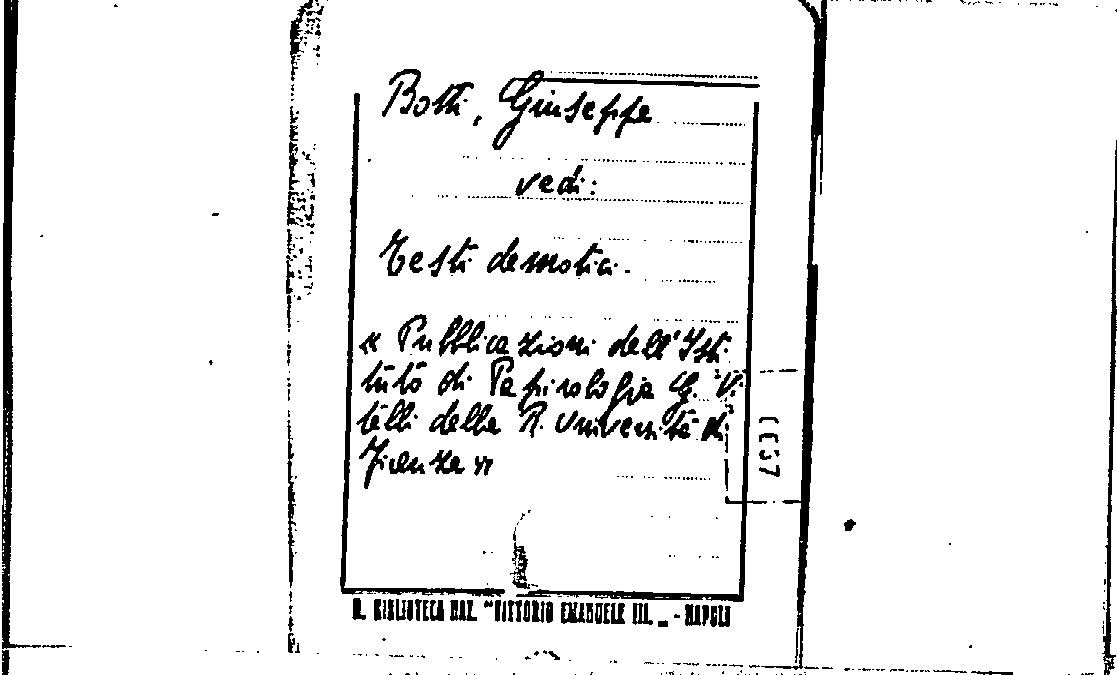 Botti, Giuseppe
vedi:
Testi demotici.
« Pubblicazioni dell'Isti
tuto di Papirologia G. Vi
telli della R. Università di
Firenze »
R. BIBLIOTECA NAZ. "VITTORIO EMANUELE III. „ - NAPOLI